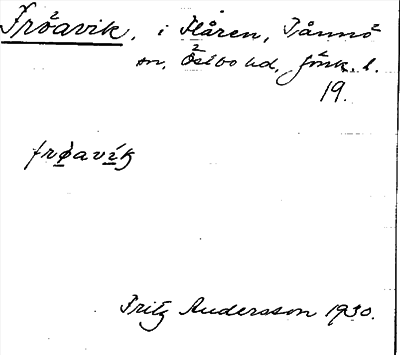 Fröavik, i Flåren, Tånnö
sn, Östbo hd, Jönk. l.
19.
frøavik
Fritz Andersson 1930.